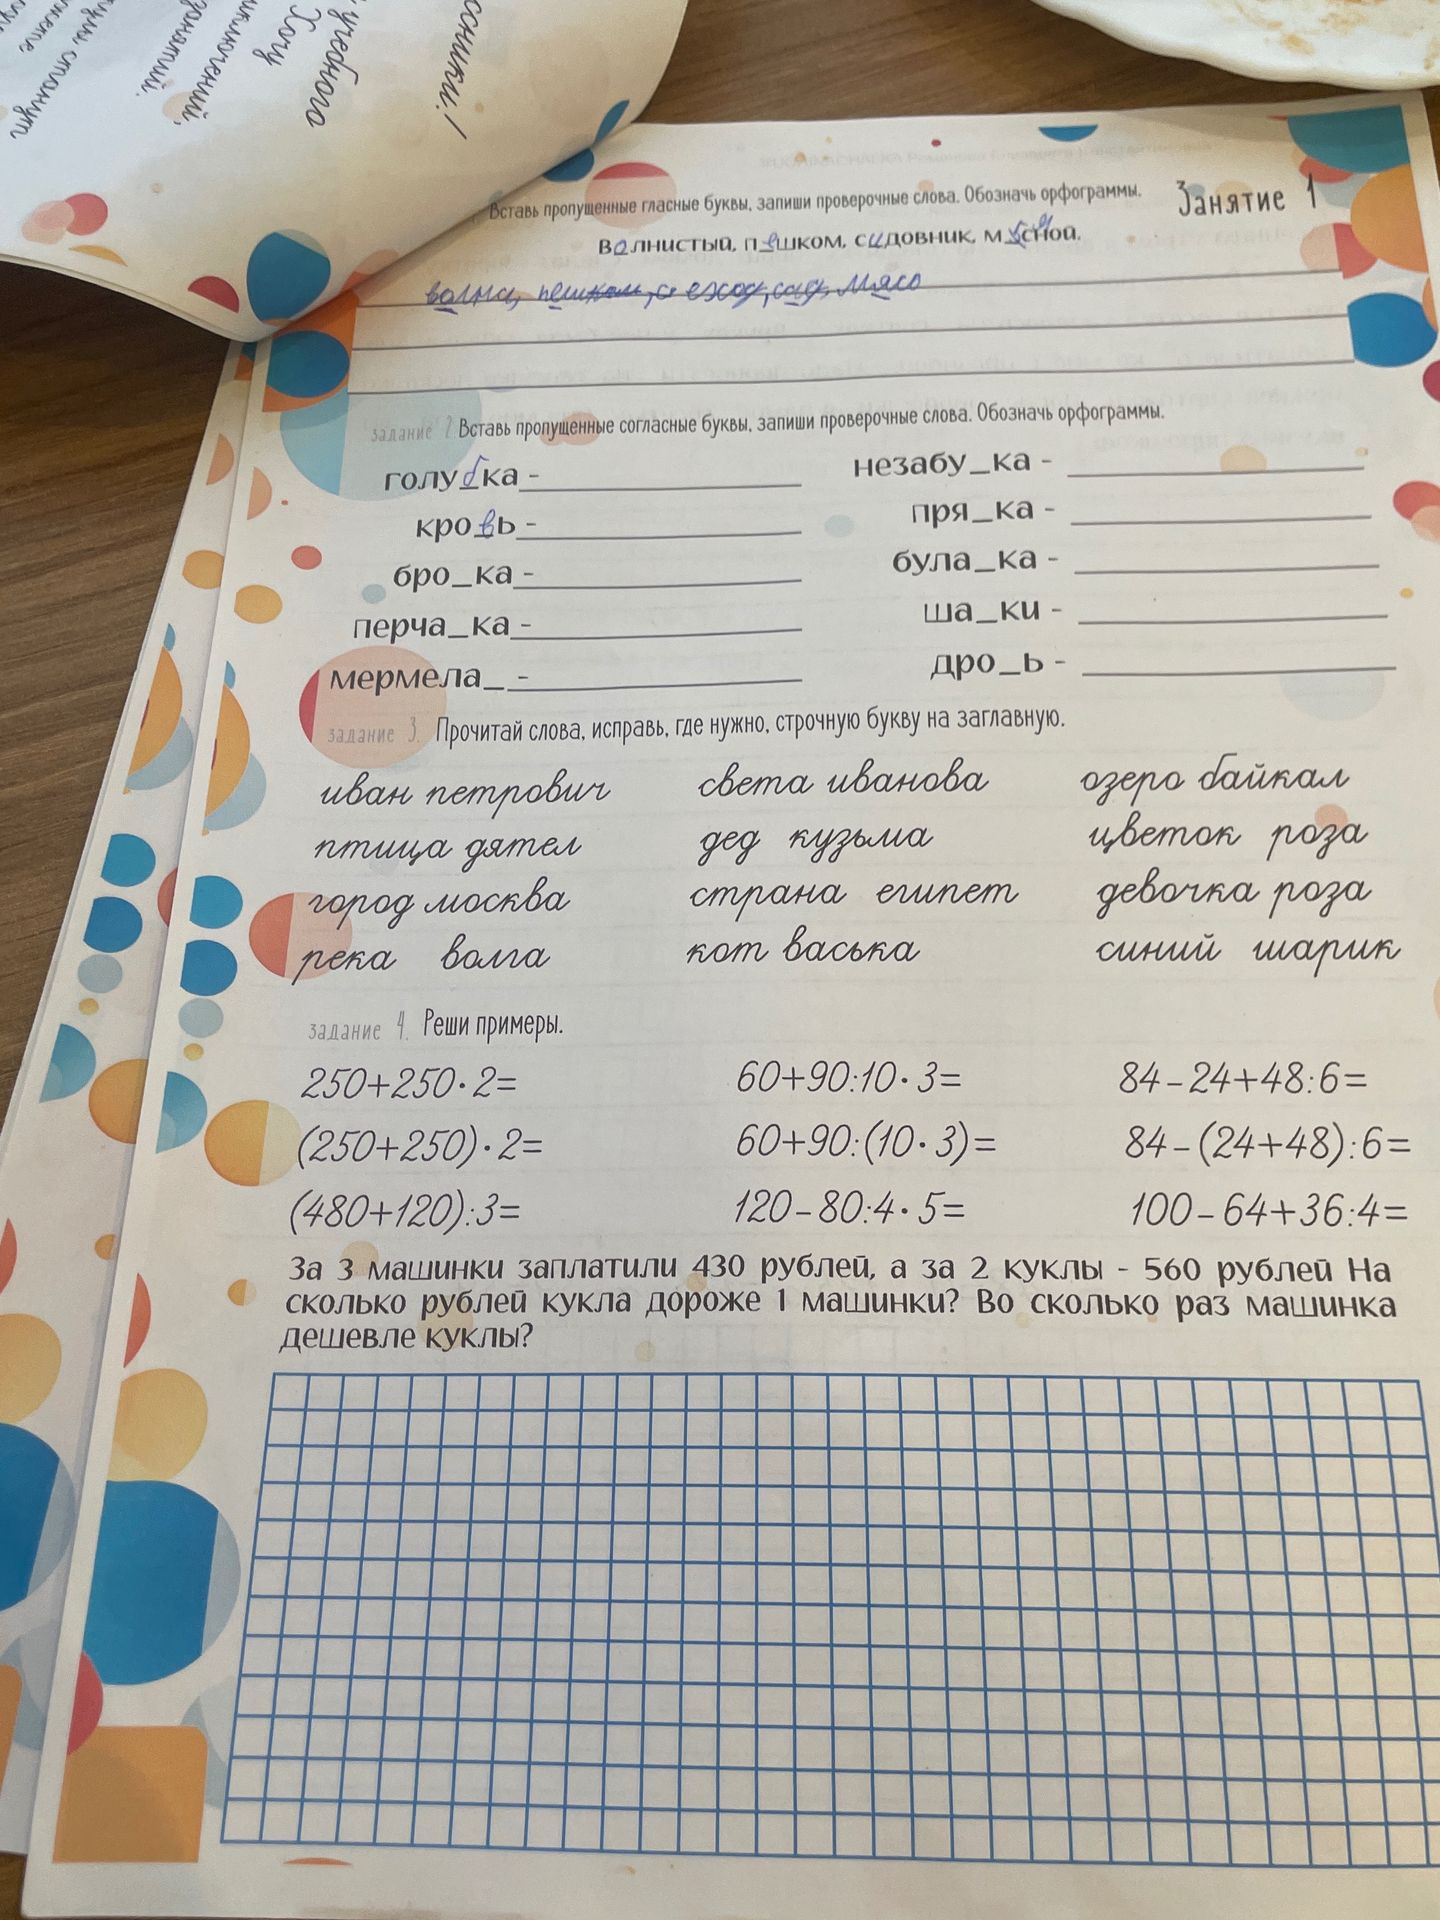 ссники!
учебного
Хочу
иключений,
занятий.
станут
Занятие 1
Вставь пропущенные гласные буквы, запиши проверочные слова. Обозначь орфограммы.
волнистый, пешком, садовник, мясной.
волна, пешком, с еход, сад, мясо
задание 2. Вставь пропущенные согласные буквы, запиши проверочные слова. Обозначь орфограммы.
голубка - незабу_ка -
кровь - пря_ка -
бро_ка - була_ка -
перча_ка - ша_ки -
мермела_ - дро_ь -
задание 3. Прочитай слова, исправь, где нужно, строчную букву на заглавную.
иван петрович света иванова озеро байкал
птица дятел дед кузьма цветок роза
город москва страна египет девочка роза
река волга кот васька синий шарик
задание 4. Реши примеры.
250+250·2= 60+90:10·3= 84-24+48:6=
(250+250)·2= 60+90:(10·3)= 84-(24+48):6=
(480+120):3= 120-80:4·5= 100-64+36:4=
За 3 машинки заплатили 430 рублей, а за 2 куклы - 560 рублей На
сколько рублей кукла дороже 1 машинки? Во сколько раз машинка
дешевле куклы?